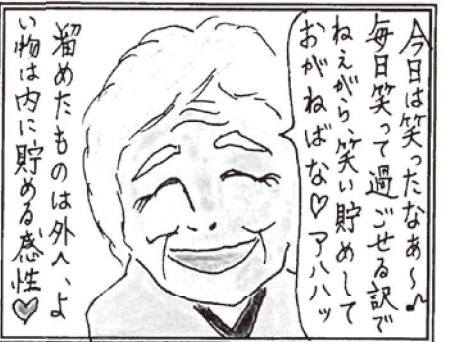 今日は笑ったなあ～♪
毎日笑って過ごせる訳で
ねぇがら、笑い貯めして
おがねばな♡アハハッ
溜めたものは外へ、よ
い物は内に貯める感性♥